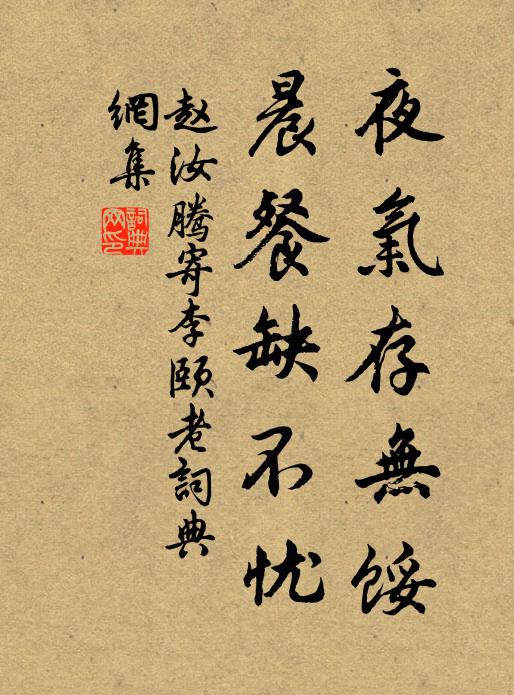 夜氣存無餒
晨餐缺不忧
赵汝腾寄李颐老詞典
網集
詞典
网印